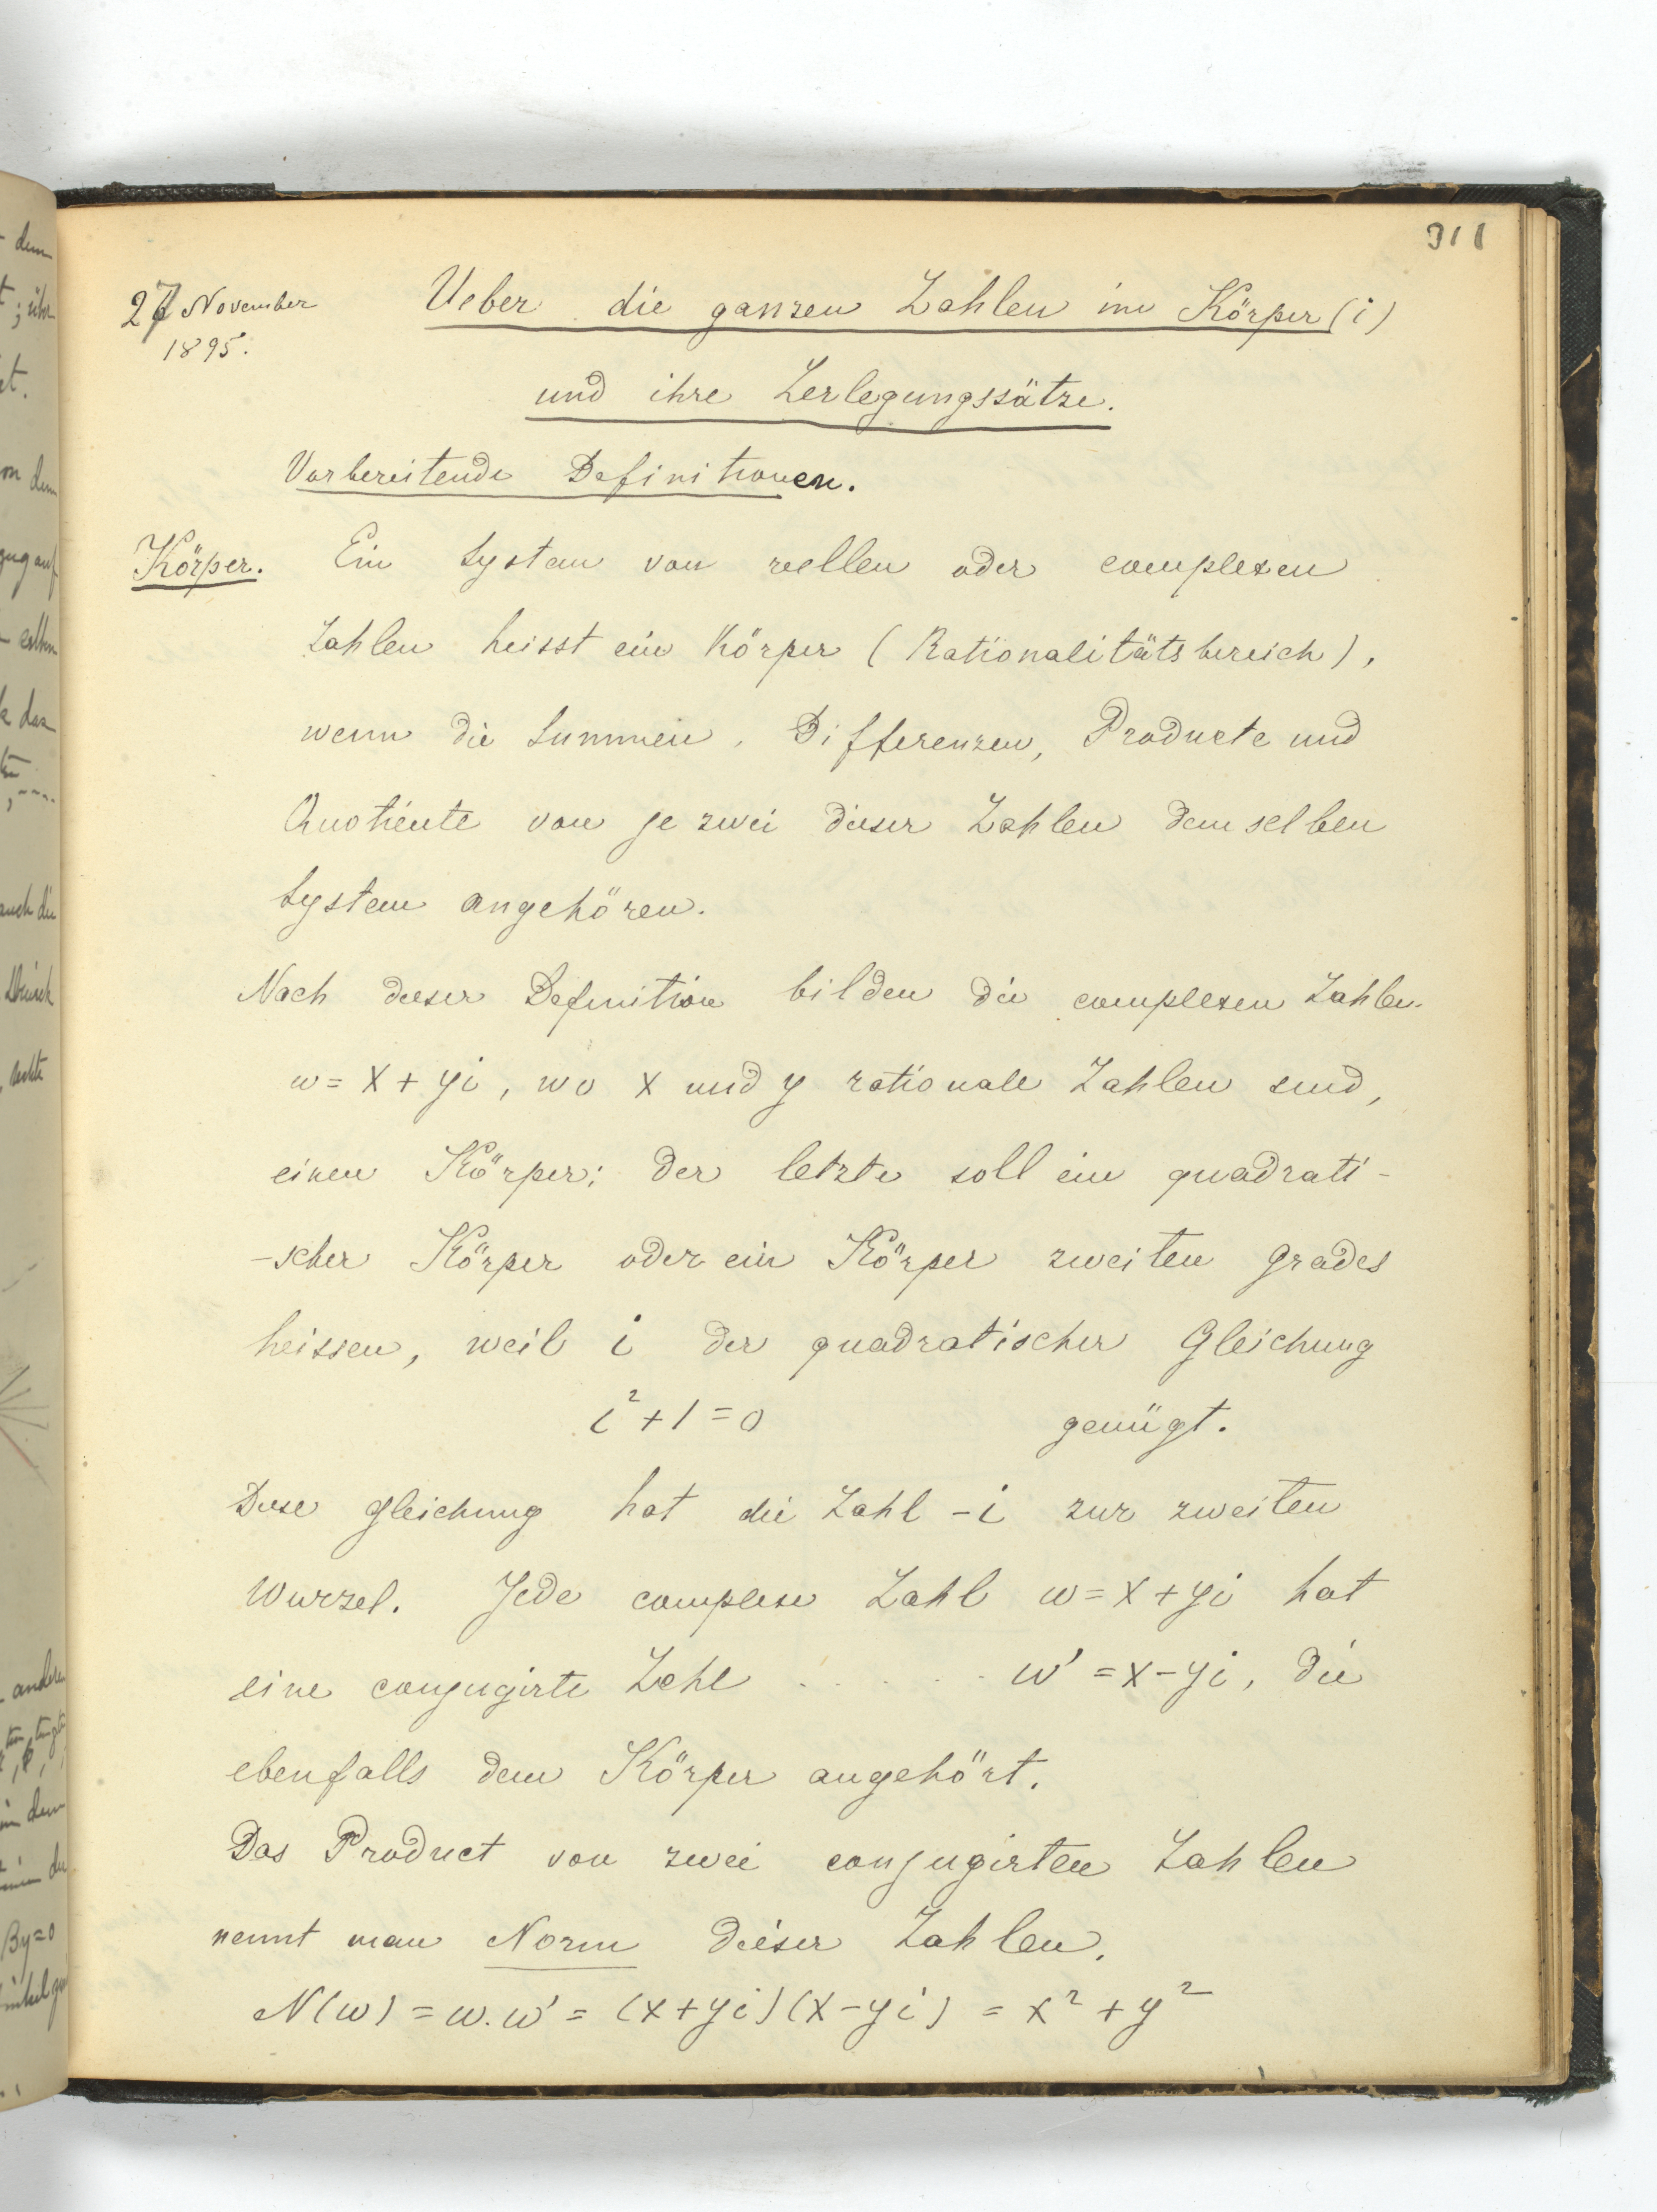 311
27 November
1895.
Ueber die ganzen Zahlen im Körper (i)
und ihre Zerlegungssätze.
Vorbereitende Definitionen.
Körper. Ein System von reellen oder complexen
Zahlen heisst ein Körper (Rationalitätsbereich),
wenn die Summen, Differenzen, Producte und
Quotiente von je zwei dieser Zahlen demselben
System angehören.
Nach dieser Definition bilden die complexen Zahlen
w = x + yi, wo x und y rationale Zahlen sind,
einen Körper; der letzte soll ein quadrati-
-scher Körper oder ein Körper zweiten Grades
heissen, weil i der quadratischer Gleichung
i² + 1 = 0 genügt.
Diese Gleichung hat die Zahl -i zur zweiten
Wurzel. Jede complexe Zahl w = x + yi hat
eine conjugirte Zahl . . . . . . w' = x - yi, die
ebenfalls dem Körper angehört.
Das Product von zwei conjugirten Zahlen
nennt man Norm dieser Zahlen.
N(w) = w.w' = (x+yi)(x-yi) = x² + y²